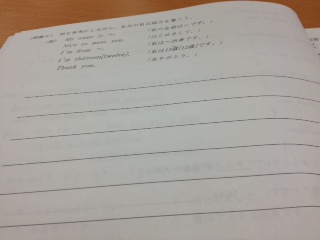 (例) My name is ～. (私の名前は～です。)
Nice to meet you. (はじめまして。)
I'm from ～. (私は～出身です。)
I'm thirteen[twelve]. (私は13歳[12歳]です。)
Thank you. (ありがとう。)